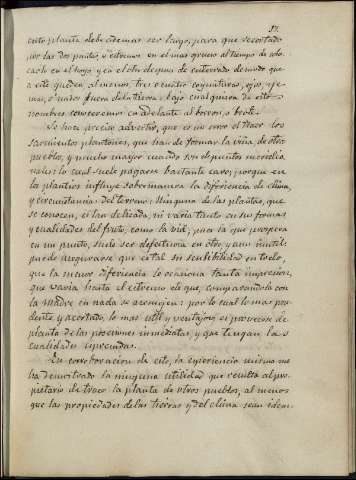 37.
ento planta debe ademas ser largo, para que se cortado
por las dos puntas, ó extremos en el mas grueso al tiempo de colo-
carlo en el hoyo, y en el otro despues de enterrado de modo que
a este queden al menos, tres ó cuatro coyunturas, ojos, ye-
mas, ó nudos fuera de la tierra; bajo cualquiera de estos
nombres conoceremos en adelante al boton, ó brote.
Se hace preciso advertir, que es un error el traer los
sarmientos plantones, que han de formar la viña, de otro
pueblo, y mucho mayor cuando son de puntos meridio-
nales: lo cual suele pagarse bastante caro; porque en
los plantios influye sobremanera la diferencia de clima,
y circunstancias del terreno: Ninguna de las plantas, que
se conocen, es tan delicada, ni varia tanto en sus formas
y cualidades del fruto, como la vid; pues la que prospera
en un punto, suele ser defectuosa en otro, y aun inutil:
puede asegurarse que es tal su sensibilidad en todo,
que la menor diferiencia le ocasiona tanta impresion,
que varia hasta el extremo de que, comparandolo con
la Madre en nada se asemejen: por lo cual lo mas pru-
dente y acertado, lo mas util y ventajoso es proveerse de
planta de las posesiones inmediatas, y que tengan las
cualidades espresadas.
En corroboracion de esto, la esperiencia misma me
ha demostrado la ninguna utilidad que resulta al pro-
pietario de traer la planta de otros pueblos, al menos
que las propiedades de las tierras y del clima sean iden-